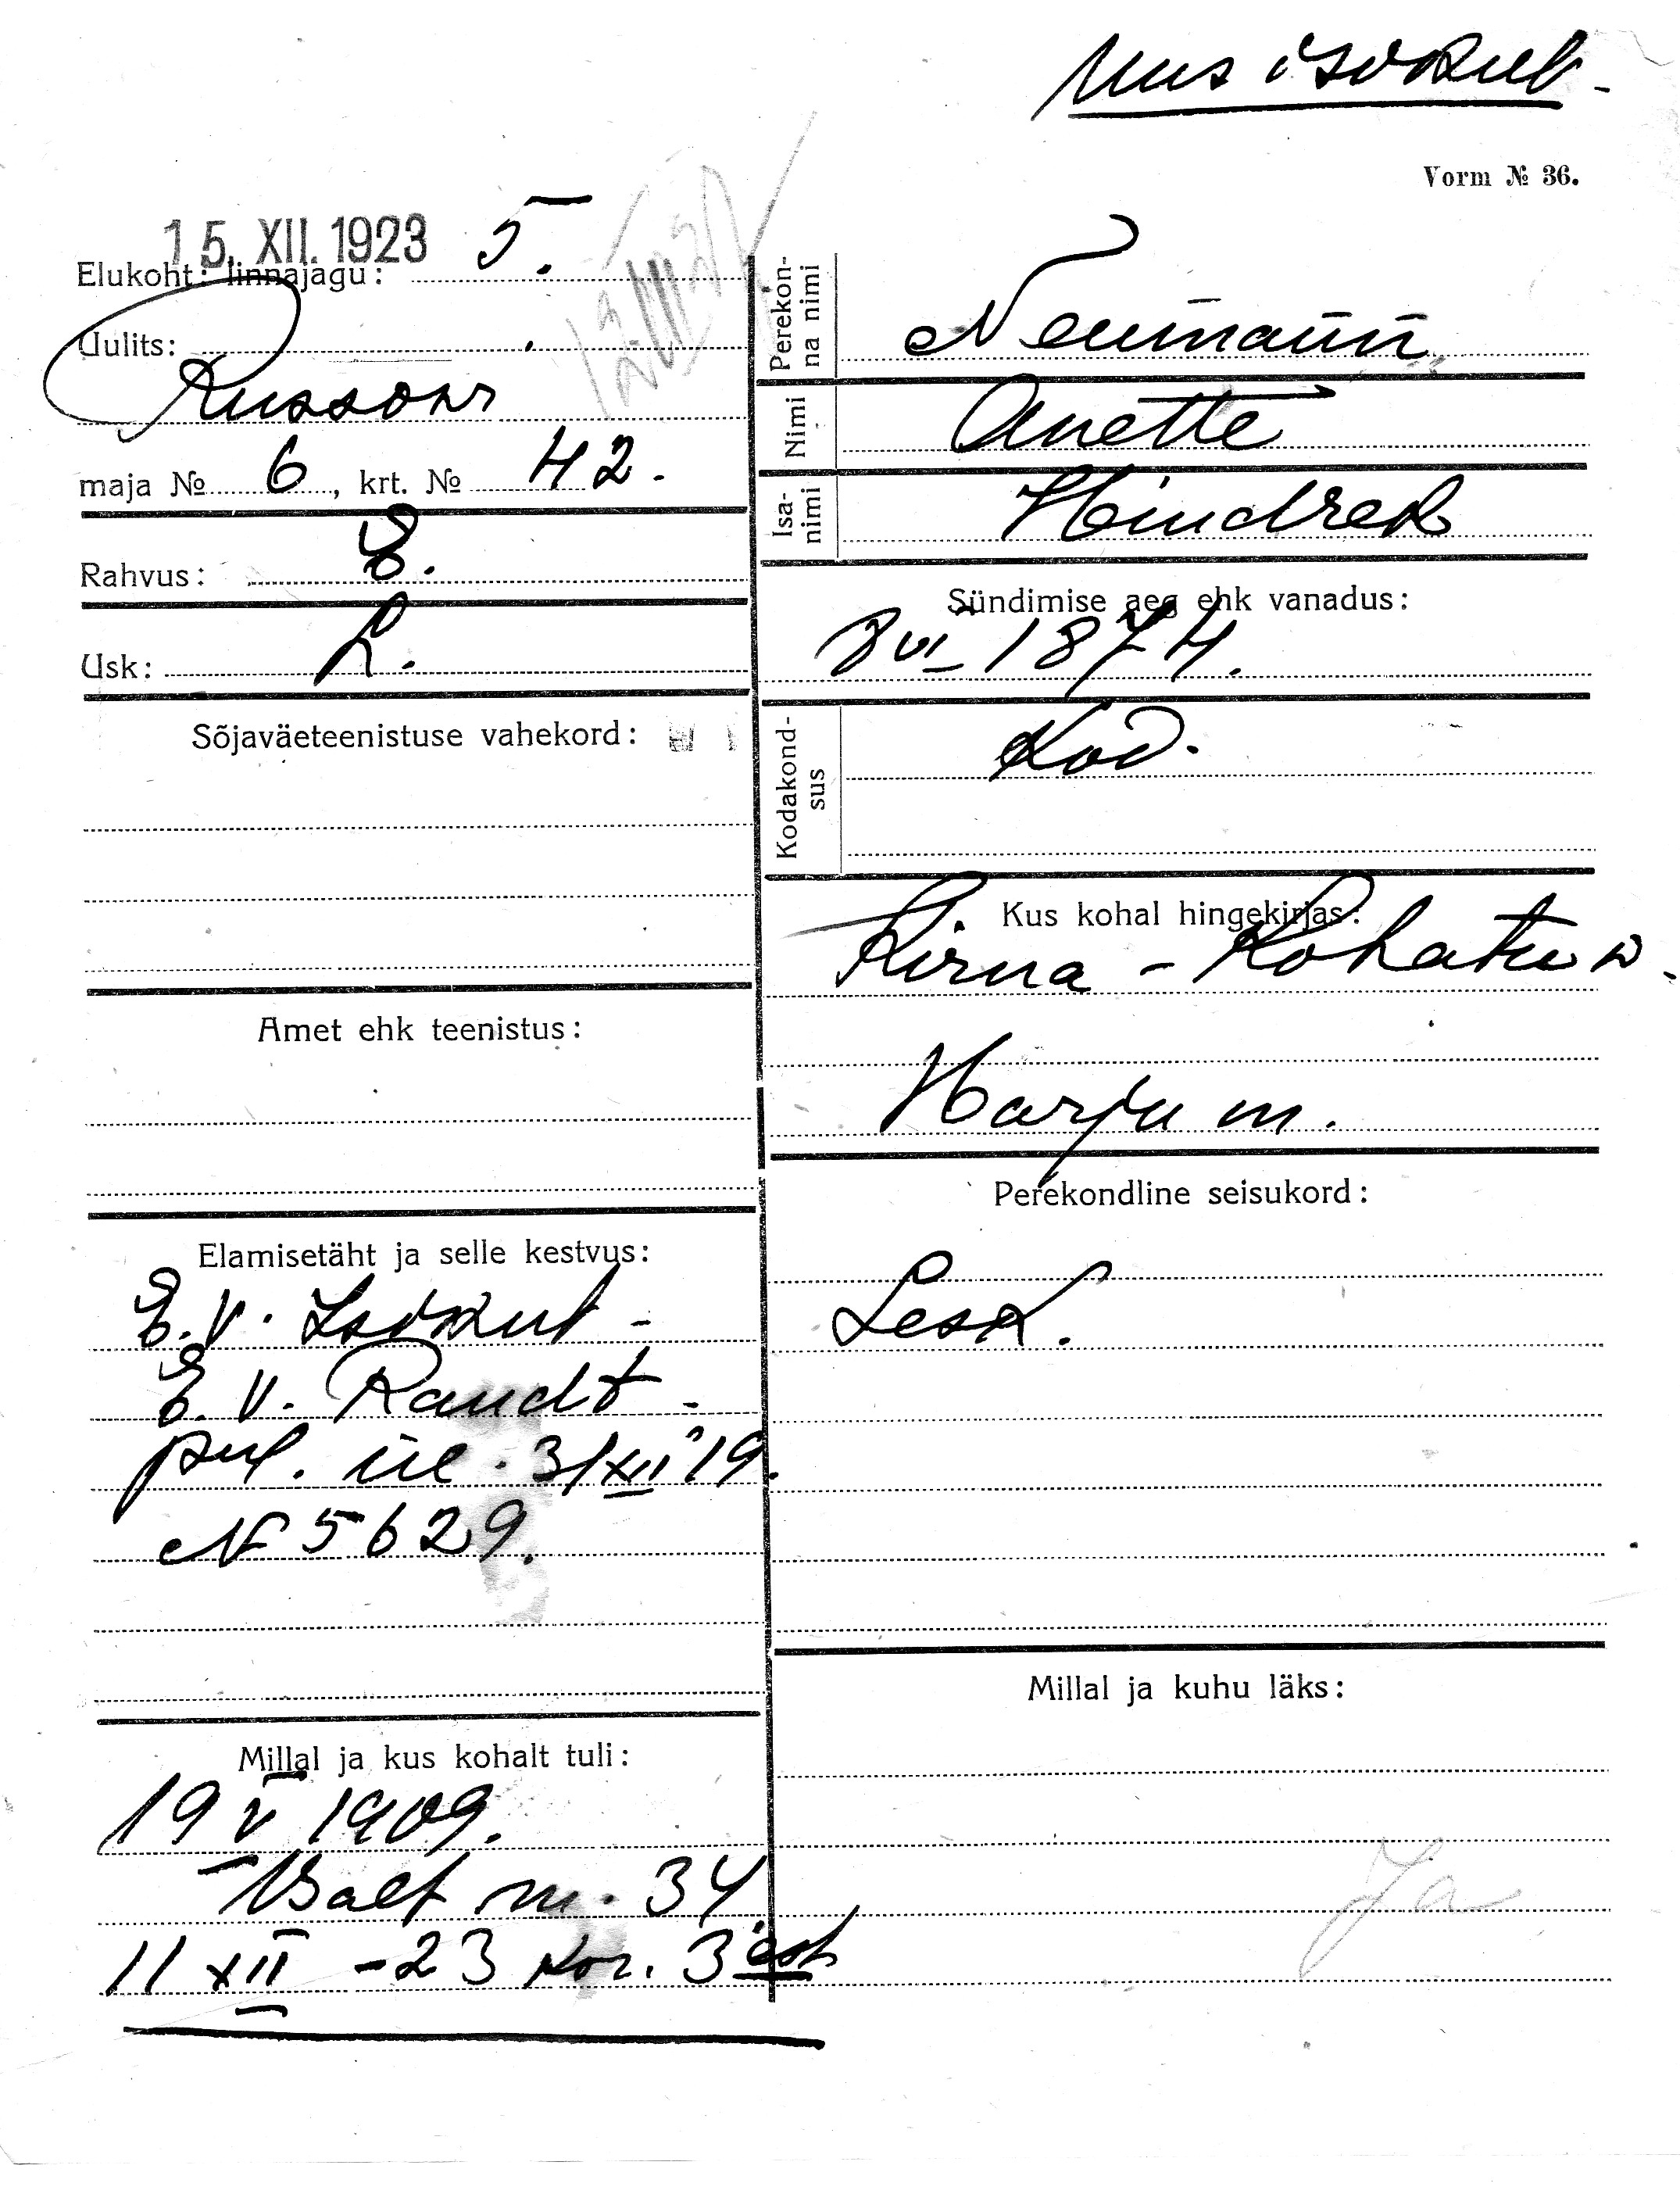 Uus isikut-
Vorm № 36.
15. XII. 1923
Elukoht: linnajagu: 5.
Uulits:
maja № 6, krt. № 42.
Rahvus: E.
Usk: L.
Sõjaväeteenistuse vahekord:
Amet ehk teenistus:
Elamisetäht ja selle kestvus:
E. V. Isikut-
E. V. Raudt-
ül. 31 XII 19.
№ 5629.
Millal ja kus kohalt tuli:
19 V 1909.
Balt m. 34
11 XII -23 kor. 3 est
Perekon-
na nimi
Neumann
Nimi
Anette
Isa-
nimi
Hindrek
Sündimise aeg ehk vanadus:
8 VI 1874.
Kodakond-
sus
Kod.
Kus kohal hingekirjas:
Kirna - Kohatu w.
Harju m.
Perekondline seisukord:
Lesk.
Millal ja kuhu läks:
Ja